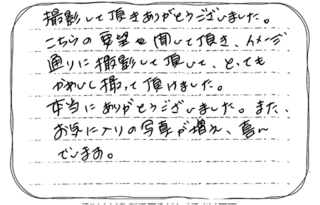 撮影して頂きありがとうございました。
こちらの要望を聞いて頂き、イメージ
通りに撮影して頂いて、とっても
かわいし撮って頂けました。
本当にありがとうございました。また、
お気に入りの写真が増え、喜ん
でいます。